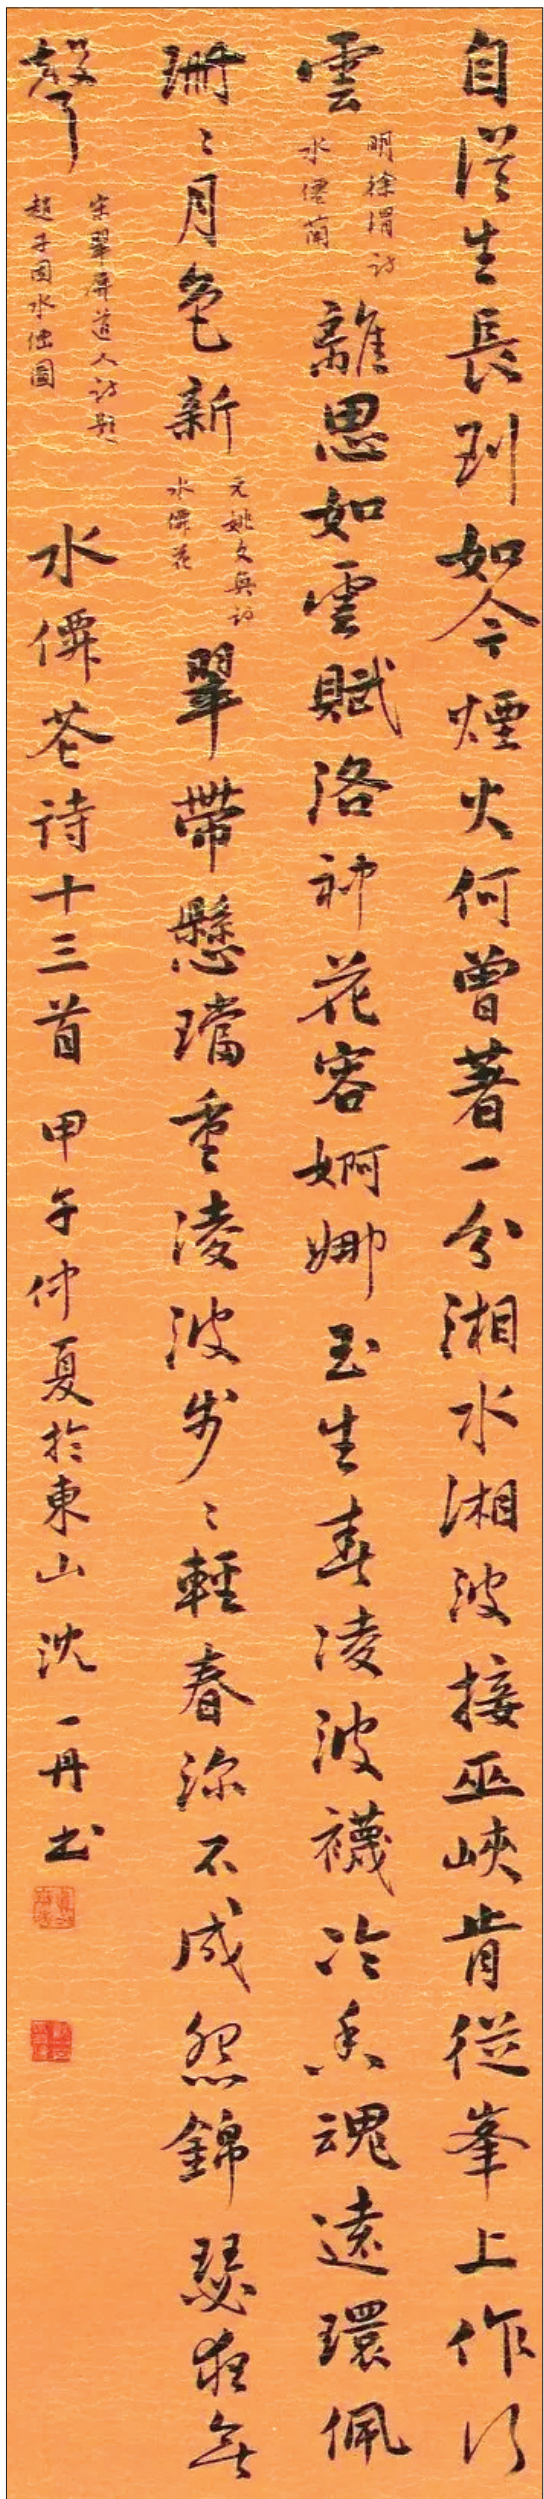 自從生長到如今煙火何曾著一分湘水湘波接巫峽肯從峯上作行
雲
明徐渭詩
水僊蘭
離思如雲賦洛神花容婀娜玉生春凌波襪冷香魂遠環佩
珊〻月色新
元姚文奐詩
水僊花
翠帶懸璫重凌波步〻輕春深不成怨錦瑟夜無
聲
宋翠屏道人詩題
趙子固水僊圖
水僊花詩十三首 甲午仲夏於東山沈一丹書